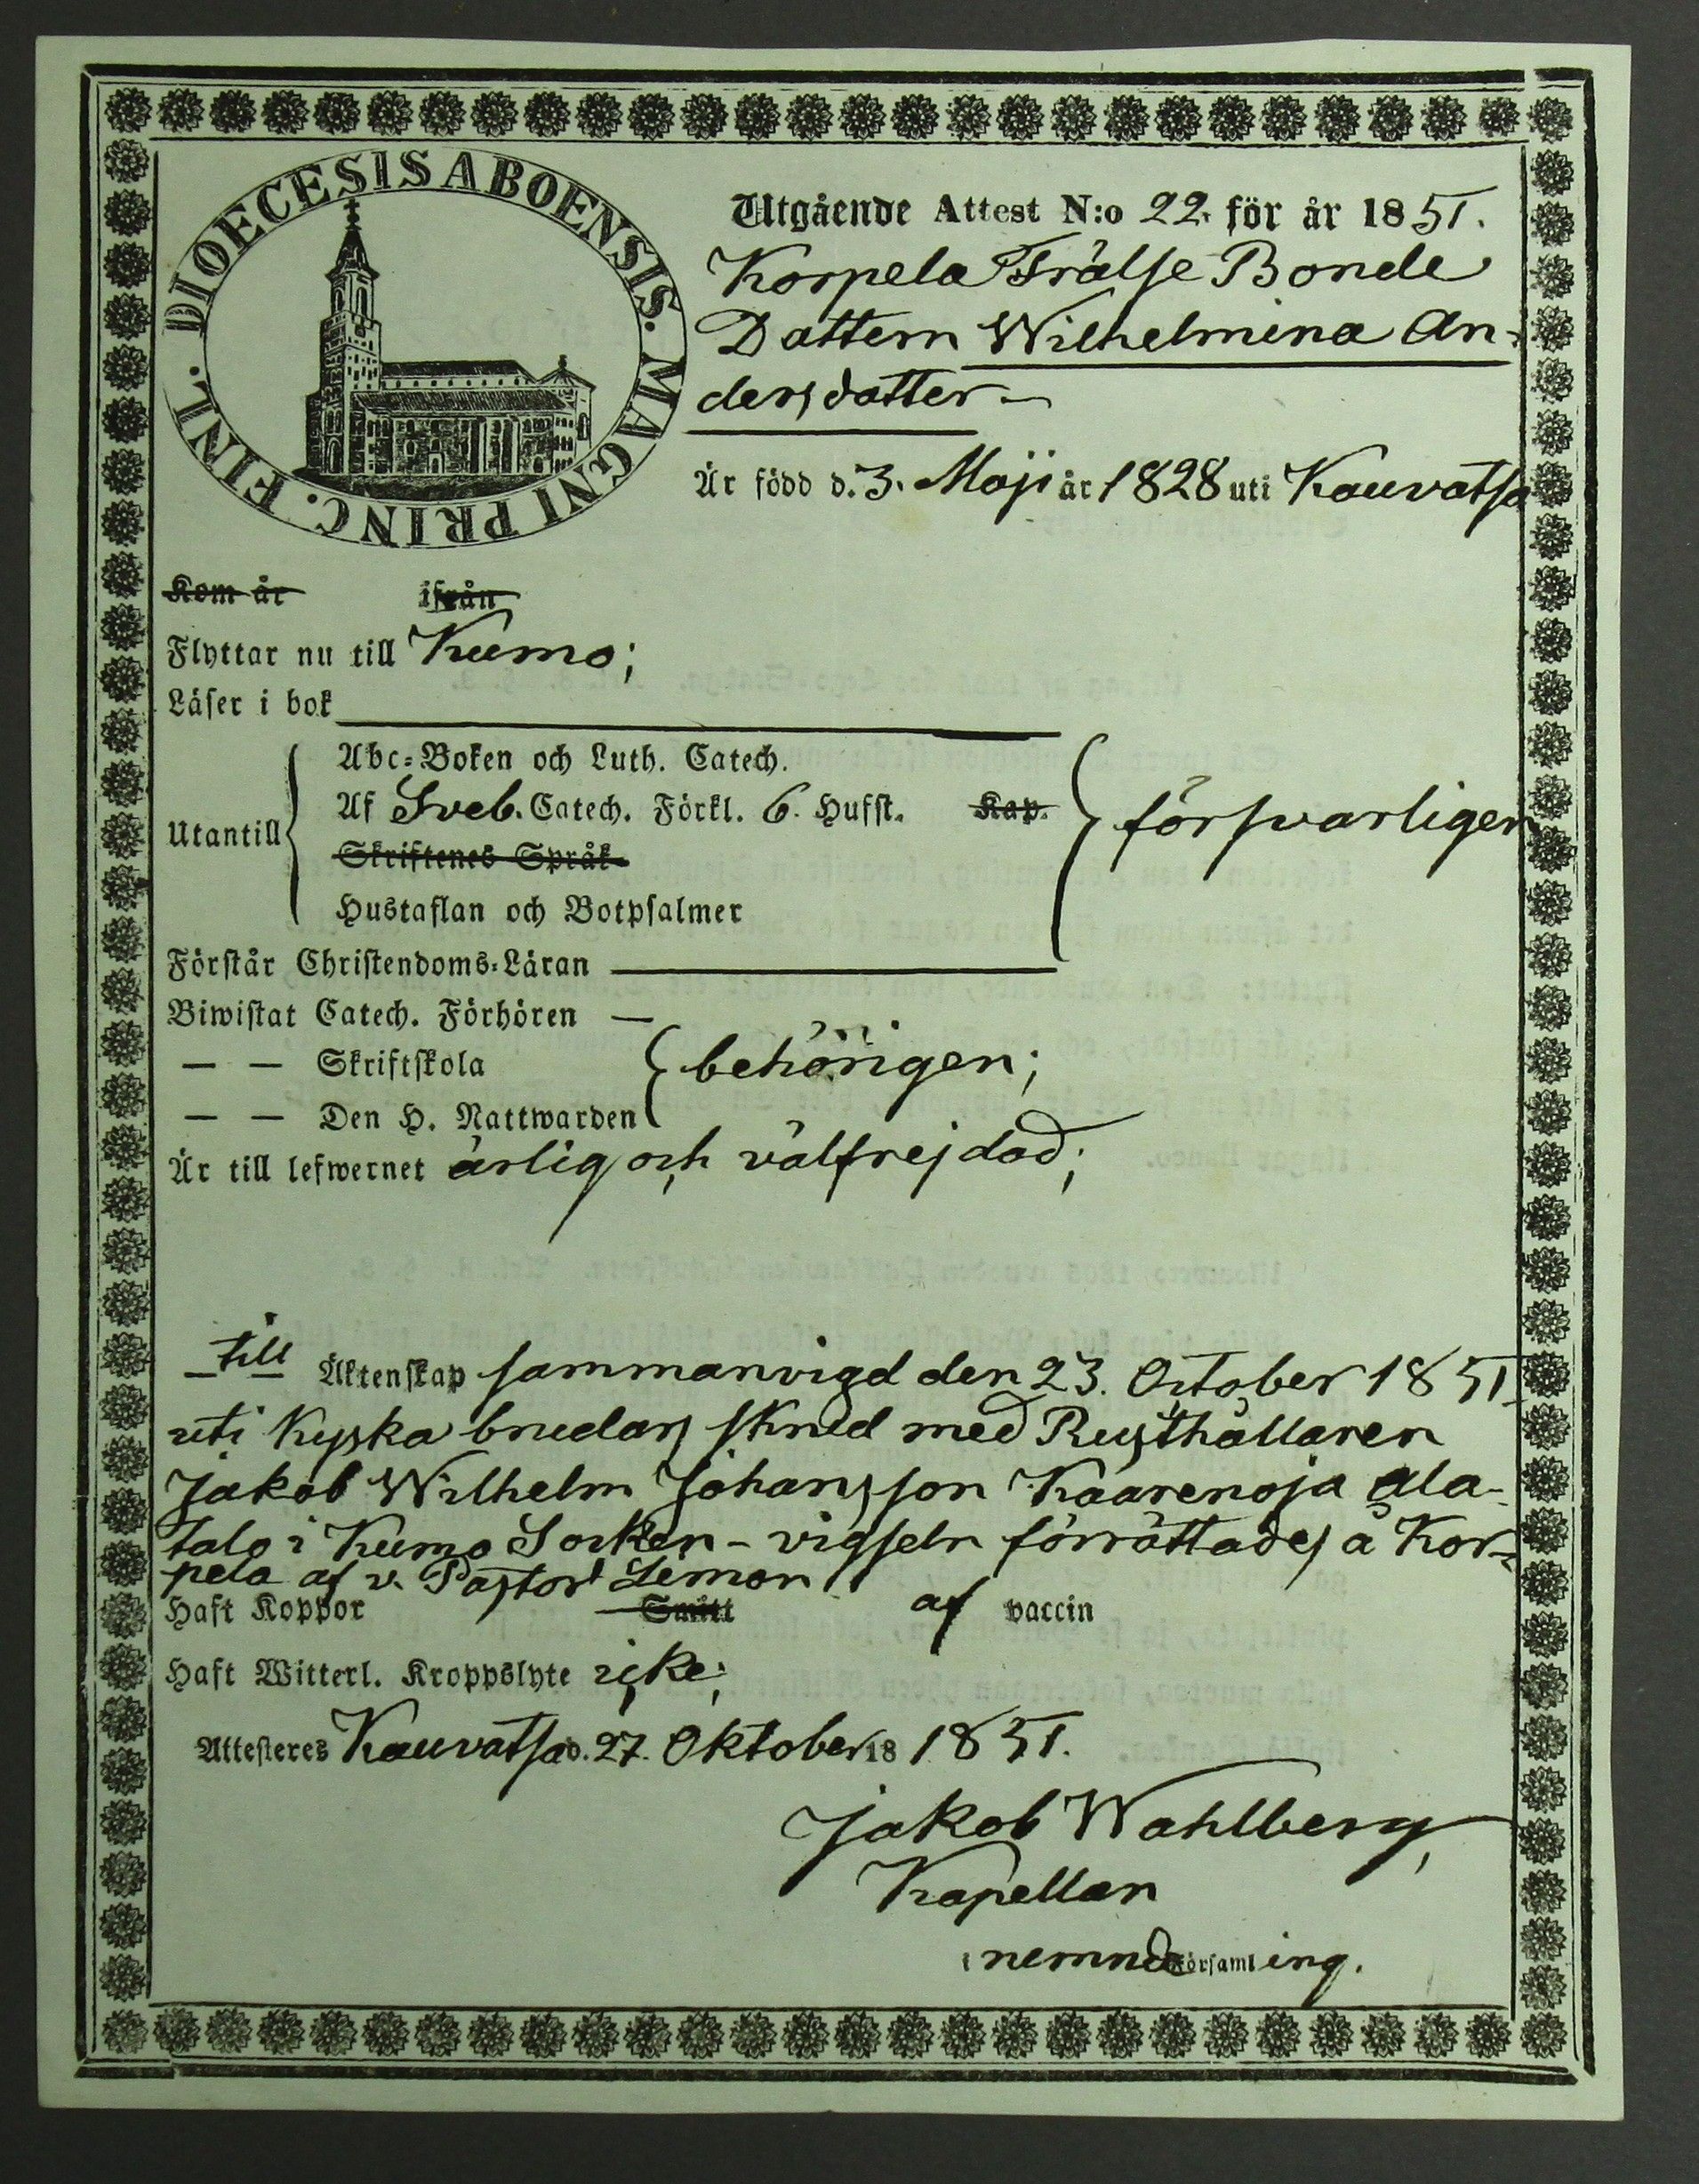 DIOECESIS ABOENSIS. MAGNI PRINC. FINL.
Utgående Attest N:o 22. för år 1851.
Korpela Frälse Bonde
Dottern Wilhelmina An-
dersdotter
Är född d. 3. Maji år 1828 uti Kauvatsa
Kom år ifrån
Flyttar nu till Kumo;
Läser i bok
Utantill
Abc-Boken och Luth. Catech.
Af Sveb. Catech. Förkl. 6. Hufst. Kap.
Skriftenes Språk
Hustaflan och Botpsalmer
försvarligen
Förstår Christendoms-Läran
Biwistat Catech. Förhören —
— — Skriftskola
— — Den H. Nattwarden
behörigen;
Är till lefwernet ärlig och välfrejdad;
till Äktenskap sammanvigd den 23. October 1851
uti kyska brudars skrud med Rusthållaren
Jakob Wilhelm Johansson Kaarenoja Ala-
talo i Kumo Socken - vigseln förrättades å Kor-
pela af v. Pastor Limon
Haft Koppor Smitt af vaccin
Haft Witterl. Kroppslyte icke;
Attesteres Kauvatsa d. 27. Oktober 18 1851.
Jakob Wahlberg,
Kapellan
i nemnde Församling.